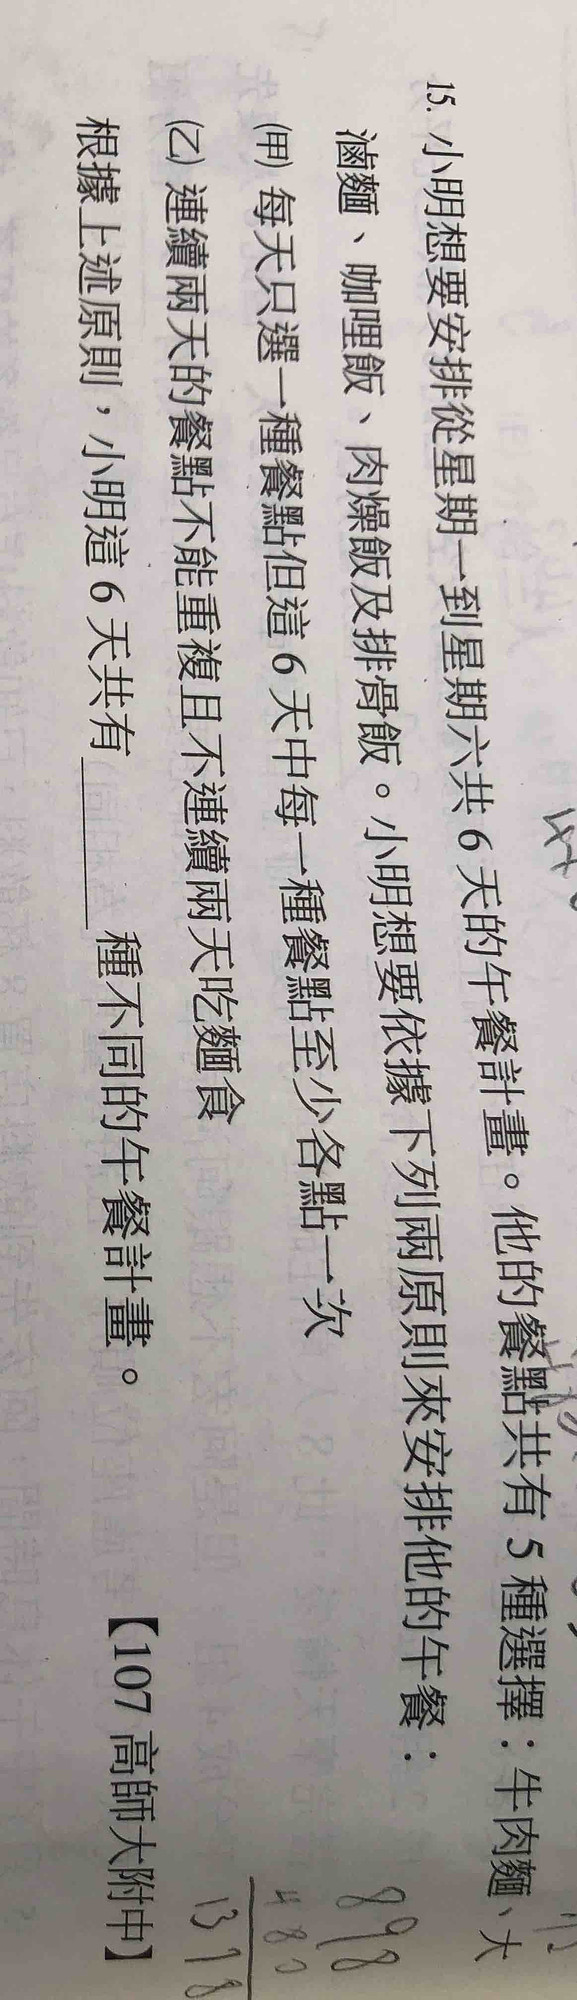 15. 小明想要安排從星期一到星期六共 6 天的午餐計畫。他的餐點共有 5 種選擇:牛肉麵、大
滷麵、咖哩飯、肉燥飯及排骨飯。小明想要依據下列兩原則來安排他的午餐:
(甲) 每天只選一種餐點但這 6 天中每一種餐點至少各點一次
(乙) 連續兩天的餐點不能重複且不連續兩天吃麵食
根據上述原則,小明這 6 天共有______種不同的午餐計畫。 【107 高師大附中】
898
480
1378